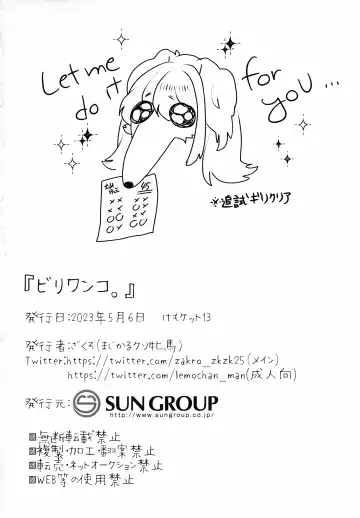 Let me
do it
for
you...
45
※追試ギリクリア
『ビリワンコ。』
発行日:2023年5月6日 けもケット13
発行者:ざくろ(まじかるクソ牝馬)
Twitter:https://twitter.com/zakro_zkzk25(メイン)
https://twitter.com/lemochan_man(成人向)
発行元: SUN GROUP
http://www.sungroup.co.jp/
■無断転載禁止
■複製・加工・翻案禁止
■転売・ネットオークション禁止
■WEB等の使用禁止